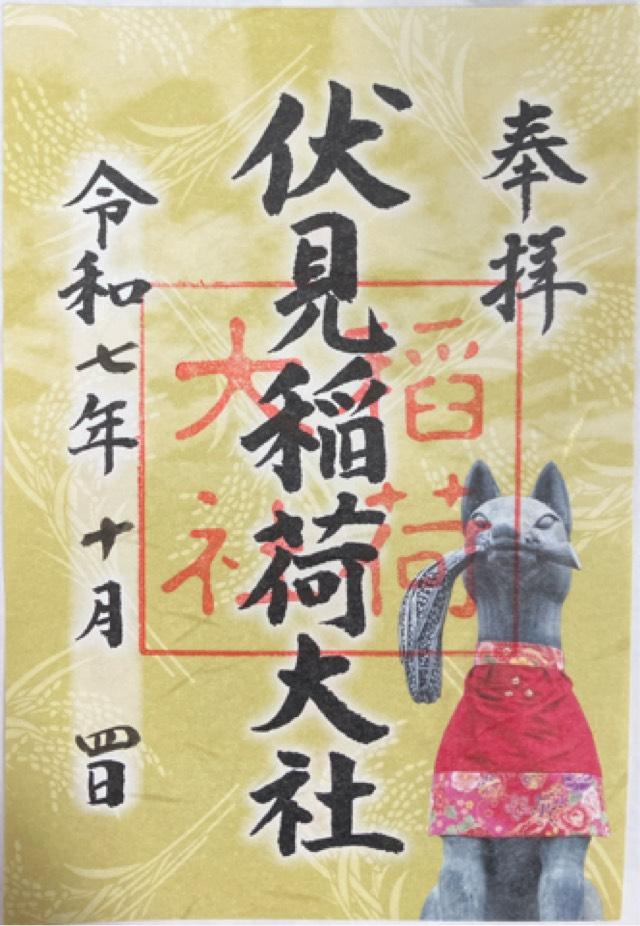 奉拝
伏見稲荷大社
稲荷
大社
令和七年十月四日